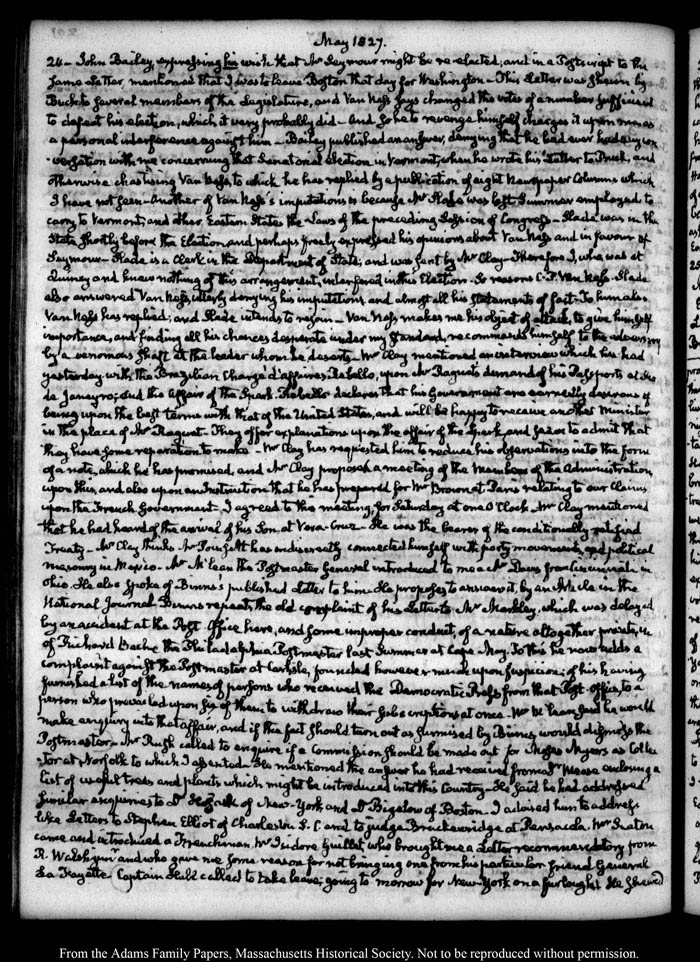 May 1827.
24 – John Bailey, expressing his wish that Mr Seymour might be re-elected; and in a Postscript to the
same Letter, mentioned that I was to leave Boston that day for Washington – This Letter was shewn by
Buck to several members of the Legislature, and Van Ness says changed the votes of a number sufficient
to defeat his election, which it very probably did – And so he to revenge himself charges it upon me as
a personal interference against him – Bailey published an answer, denying that he had ever had any con
-versation with me concerning that Senatorial Election in Vermont, when he wrote his Letter to Buck; and
otherwise chastising Van Ness, to which he has replied by a publication of eight Newspaper Columns which
I have not seen – Another of Van Ness's imputations is because Mr Slade was last Summer employed to
carry to Vermont, and other Eastern States the Laws of the preceding Session of Congress – Slade was in the
State shortly before the Election, and perhaps freely expressed his opinions about Van Ness and in favour of
Seymour – Slade is a Clerk in the Department of State; and was sent by Mr Clay – Therefore I, who was at
Quincy and knew nothing of this arrangement, interfered in this Election – So reasons C. P. Van Ness. Slade
also answered Van Ness, utterly denying his imputations and almost all his statements of fact. To him also
Van Ness has replied; and Slade intends to rejoin – Van Ness makes me his object of attack, to give himself
importance, and finding all his chances desperate under my standard, recommends himself to the adversary
by a venomous shaft at the leader whom he deserts – Mr Clay mentioned an interview which he had
yesterday with the Brazilian Chargé d'affaires, Rebello, upon Mr Raguet's demand of his Passports at Rio
de Janeyro; and the Affair of the Spark. Rebello declares that his Government are earnestly desirous of
being upon the best terms with that of the United States, and will be happy to receive another Minister
in the place of Mr Raguet – They offer explanations upon the affair of the Spark, and seem to admit that
they have some reparation to make – Mr Clay has requested him to reduce his observations into the form
of a note, which he has promised, and Mr Clay proposes a meeting of the Members of the Administration
upon this, and also upon an Instruction that he has prepared for Mr Brown at Paris relating to our Claims
upon the French Government – I agreed to the meeting, for Saturday at one O'Clock – Mr Clay mentioned
that he had heard of the arrival of his Son, at Vera-Cruz – He was the bearer of the conditionally ratified
Treaty – Mr Clay thinks Mr Poinsett has indiscreetly connected himself with party movements, and political
masonry in Mexico – Mr McLean the Postmaster General introduced to me a Mr Davis from Cincinnati in
Ohio. He also spoke of Binns's published Letter to him. He proposes to answer it, by an Article in the
National Journal – Binns repeats, the old complaint of his Letter to Mr Markley, which was delayed
by an accident at the Post-Office here, and some improper conduct, of a nature altogether private,
of Richard Bache the Philadelphia Postmaster last Summer at Cape May. To this he now adds a
complaint against the Postmaster at Carlisle, founded however much upon suspicion; of his having
furnished a list of the names of persons who received the Democratic Press from that Post-office, to a
person who prevailed upon six of them to withdraw their subscriptions at once – Mr McLean said he would
make enquiry into that affair, and if the fact should turn out as surmised by Binns, would dismiss the
Postmaster – Mr Rush called to enquire if a Commission should be made out for Moses Myers as Collec
-tor at Norfolk to which I assented. He mentioned the answer he had received from Dr Mease enclosing a
list of useful trees and plants which might be introduced into this Country – He said he had addressed
similar enquiries to Dr Hosack of New-York and Dr Bigelow of Boston. I advised him to address
like Letters to Stephen Elliot of Charleston S.C. and to Judge Brackenridge at Pensacola. Mr Seaton
came and introduced a Frenchman Mr Isidore Guillet, who brought me a Letter recommendatory from
R. Walsh junr and who gave me some reason for not bringing one from his particular friend General
La Fayette. Captain called to take leave; going to morrow for New-York on a furlough. He shewed
From the Adams Family Papers, Massachusetts Historical Society. Not to be reproduced without permission.